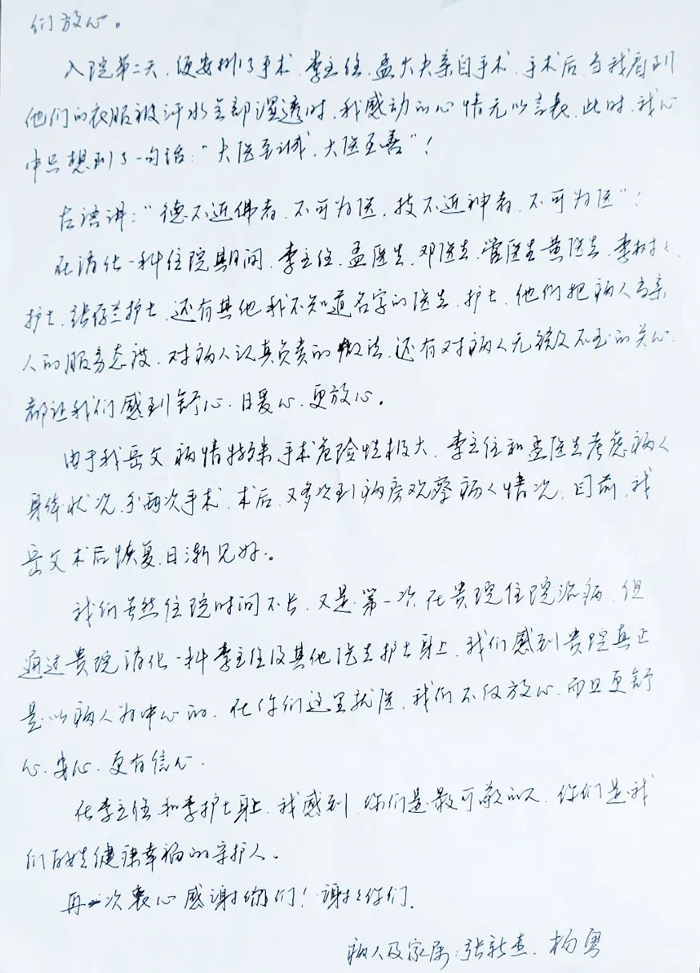 们放心。
入院第二天，便安排了手术，李主任、孟大夫亲自手术，手术后，当我看到
他们的衣服被汗水全部湿透时，我感动的心情无以言表，此时，我心
中只想到了一句话："大医至诚，大医至善"！
古语讲："德不近佛者，不可为医，技不近神者，不可为医"！
在消化一科住院期间，李主任、孟医生、邓医生、管医生、黄医生、李树
护士、张存兰护士，还有其他我不知道名字的医生、护士，他们把病人当亲
人的服务态度，对病人认真负责的做法，还有对病人无微不至的关心，
都让我们感到舒心、暖心、更放心。
由于我岳父病情特殊，手术危险性极大，李主任和孟医生考虑病人
身体状况，分两次手术，术后，又多次到病房观察病人情况，目前，我
岳父术后恢复日渐见好。
我们虽然住院时间不长，又是第一次在贵院住院治病，但
通过贵院消化一科李主任及其他医生护士身上，我们感到贵院真正
是以病人为中心的，在你们这里就医，我们不仅放心，而且更舒
心、安心、更有信心。
在李主任和李护士身上，我感到，你们是最可敬的人，你们是我
们百姓健康幸福的守护人。
再一次衷心感谢你们！谢谢你们。
病人及家属：张新